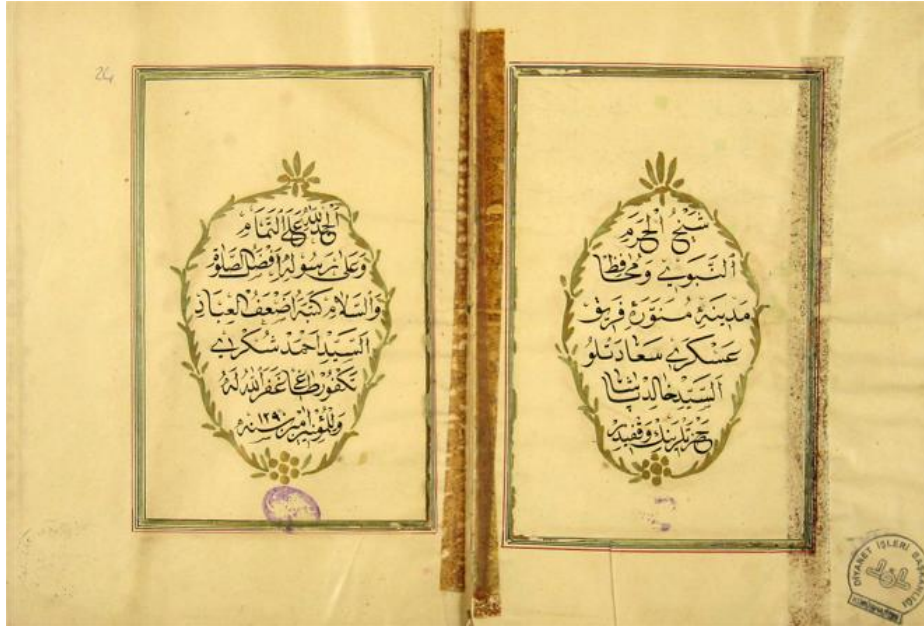 شَيْخُ الْحَرَمِ
النَّبَوِي وَمُحَافِظ
مَدِينَهٔ مُنَوَّرَه فَرِيقِ
عَسْكَرِي سَعَادَتْلُو
اَلسَّيِّد خَالِد پَاشَا
حَضْرَتْلَرِينَك وَقْفِيدِر
اَلْحَمْدُ لِلّٰهِ عَلَى التَّمَامِ
وَعَلٰى رَسُولِهِ اَفْضَلُ الصَّلٰوةِ
وَالسَّلَامِ كَتَبَهُ اَضْعَفُ الْعِبَادِ
اَلسَّيِّد اَحْمَد شُكْرِي
تكفورطاغي غَفَرَ اللّٰهُ لَهُ
سنه ١٢٩٠
24
DİYANET İŞLERİ BAŞKANLIĞI